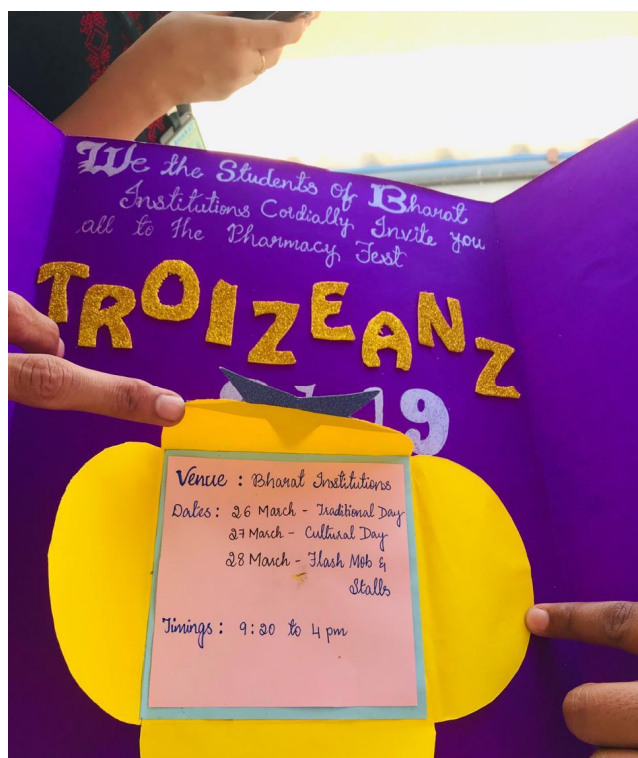 We the Students of Bharat
Institutions Cordially Invite you
all to the Pharmacy Fest
TROIZEANZ
19
Venue : Bharat Institutions
Dates : 26 March - Traditional Day
27 March - Cultural Day
28 March - Flash Mob &
Stalls
Timings : 9:20 to 4 pm